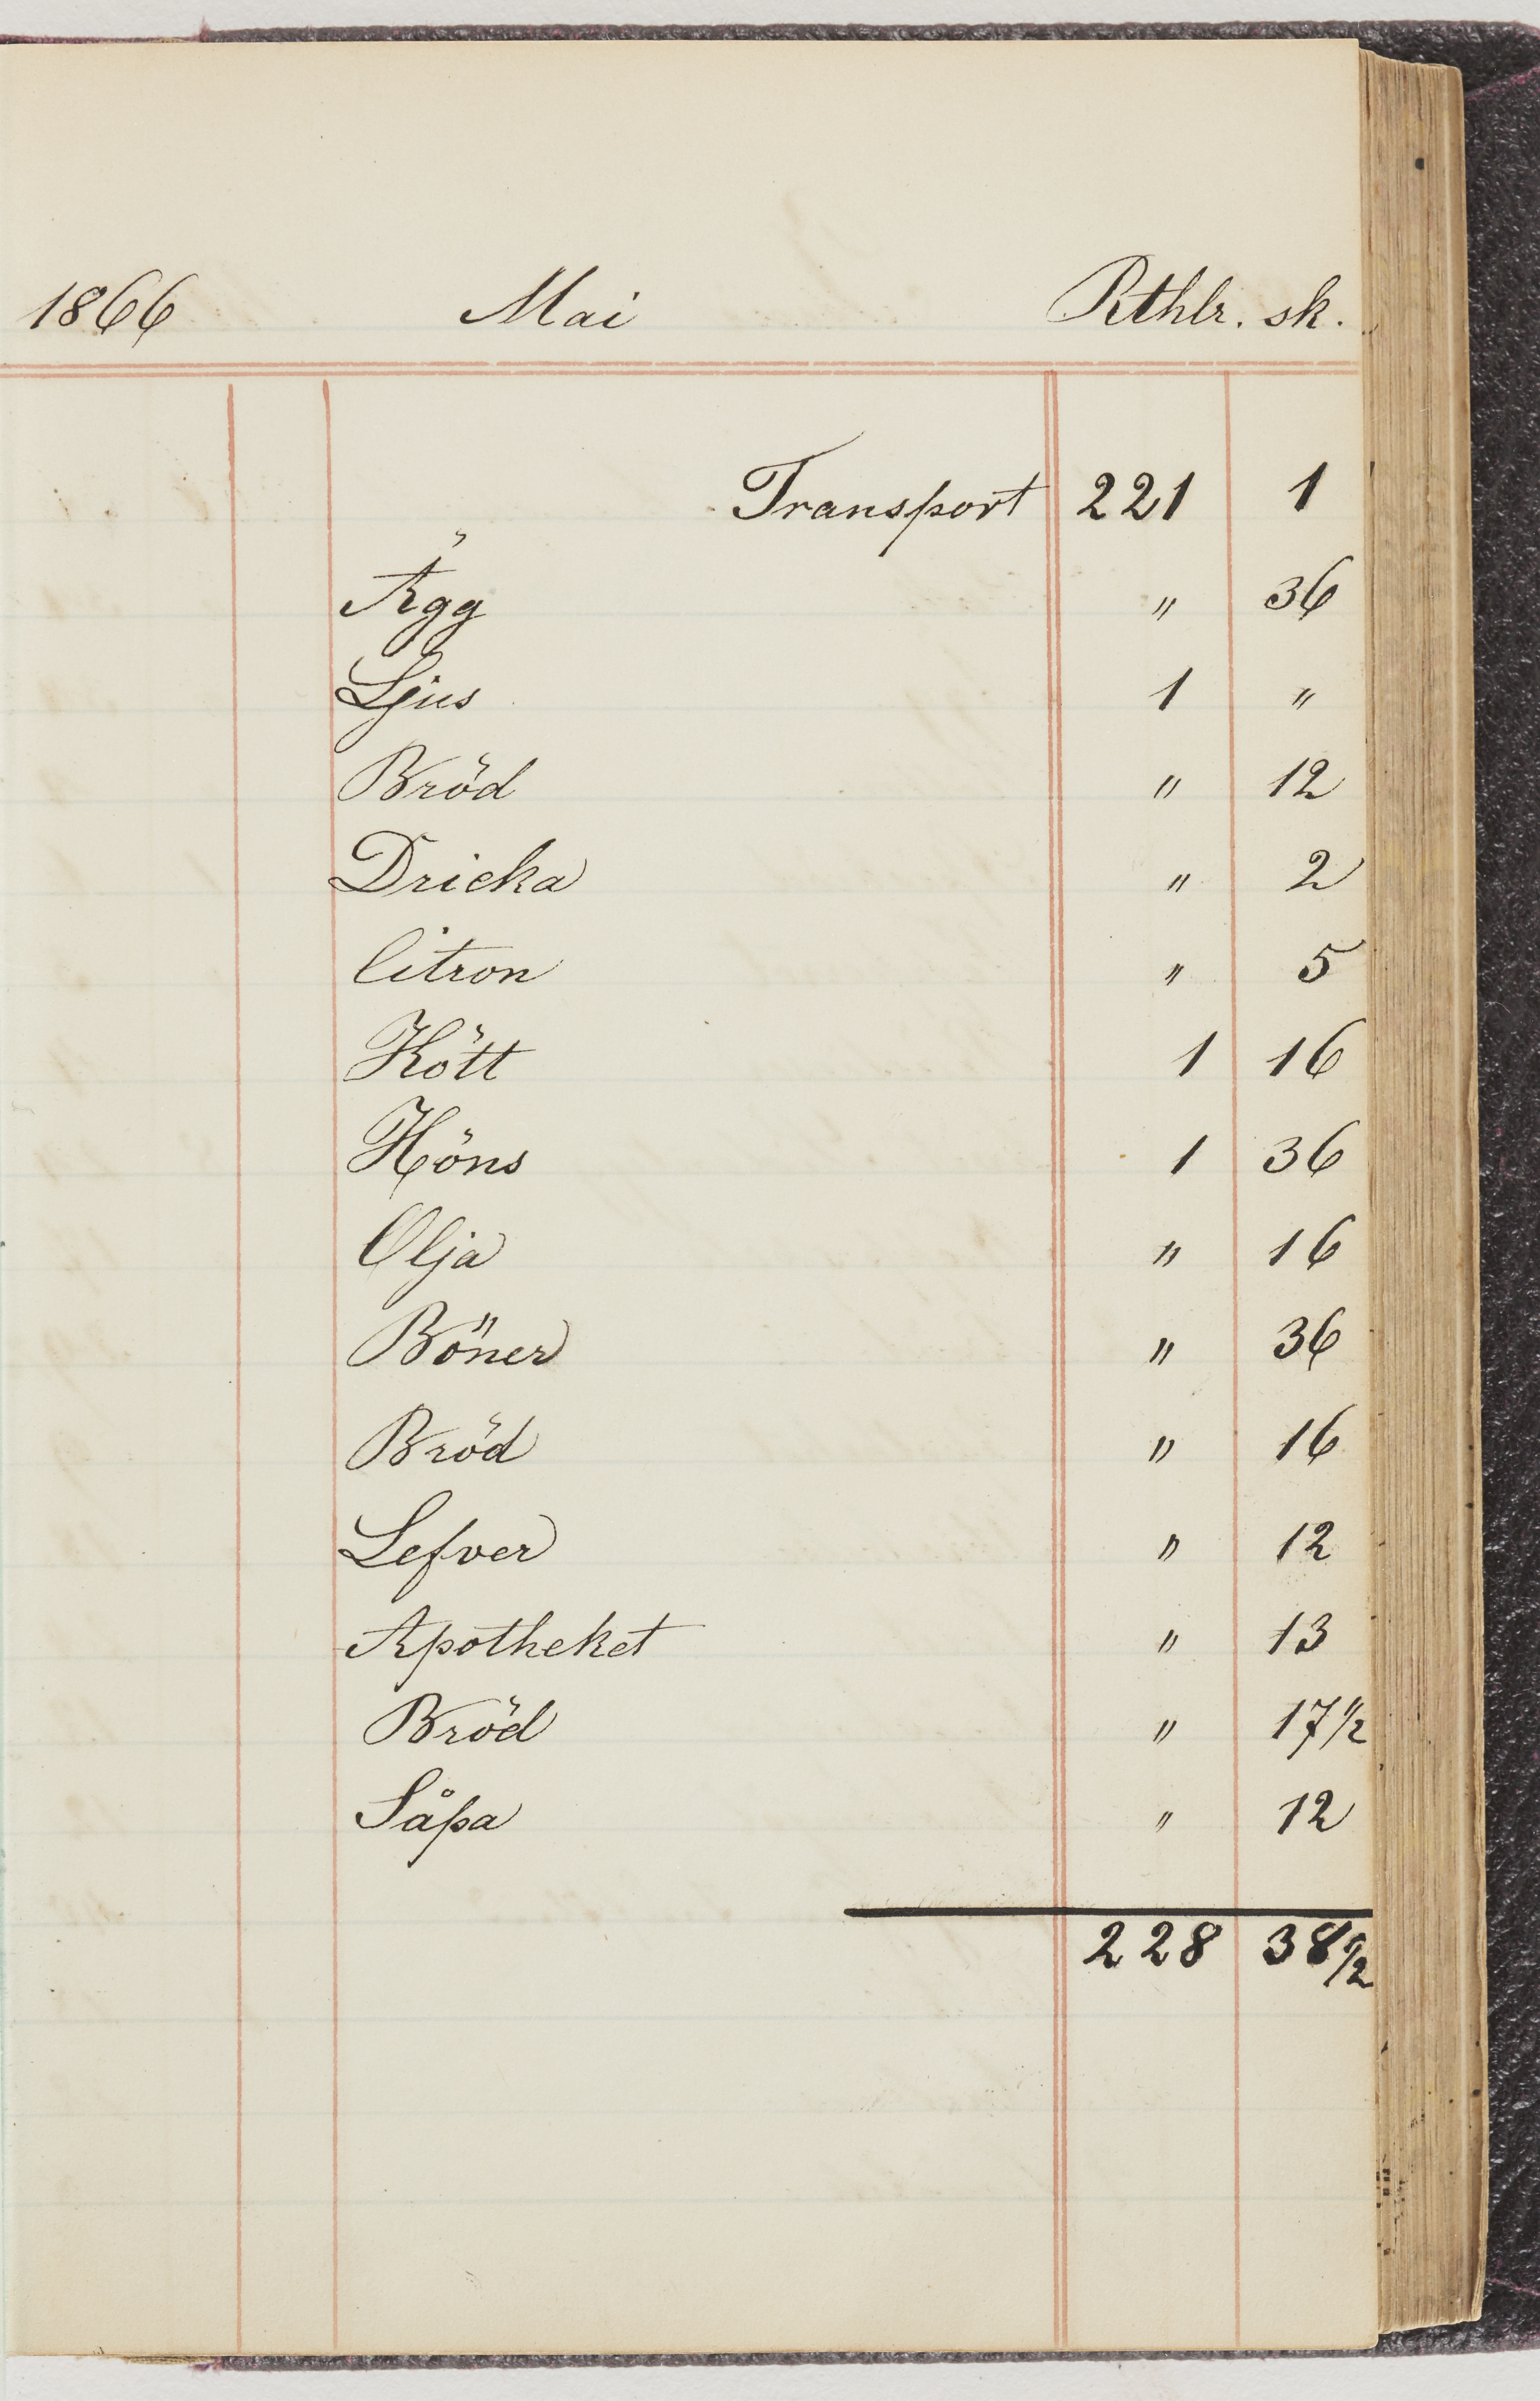 1866 Mai Rthlr. sk.
Transport 221 1
Ägg " 36
Ljus 1 "
Bröd " 12
Dricka " 2
Citron " 5
Kött 1 16
Höns 1 36
Olja " 16
Böner " 36
Bröd " 16
Lefver " 12
Apotheket " 13
Bröd " 17 1/2
Såpa " 12
228 38 1/2